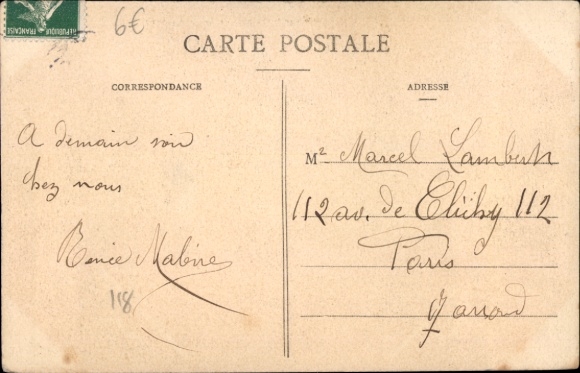 RÉPUBLIQUE FRANÇAISE
6€
CARTE POSTALE
CORRESPONDANCE
A demain soir
chez nous
118
ADRESSE
Mr Marcel Lambert
112 av. de Clichy 112
Paris